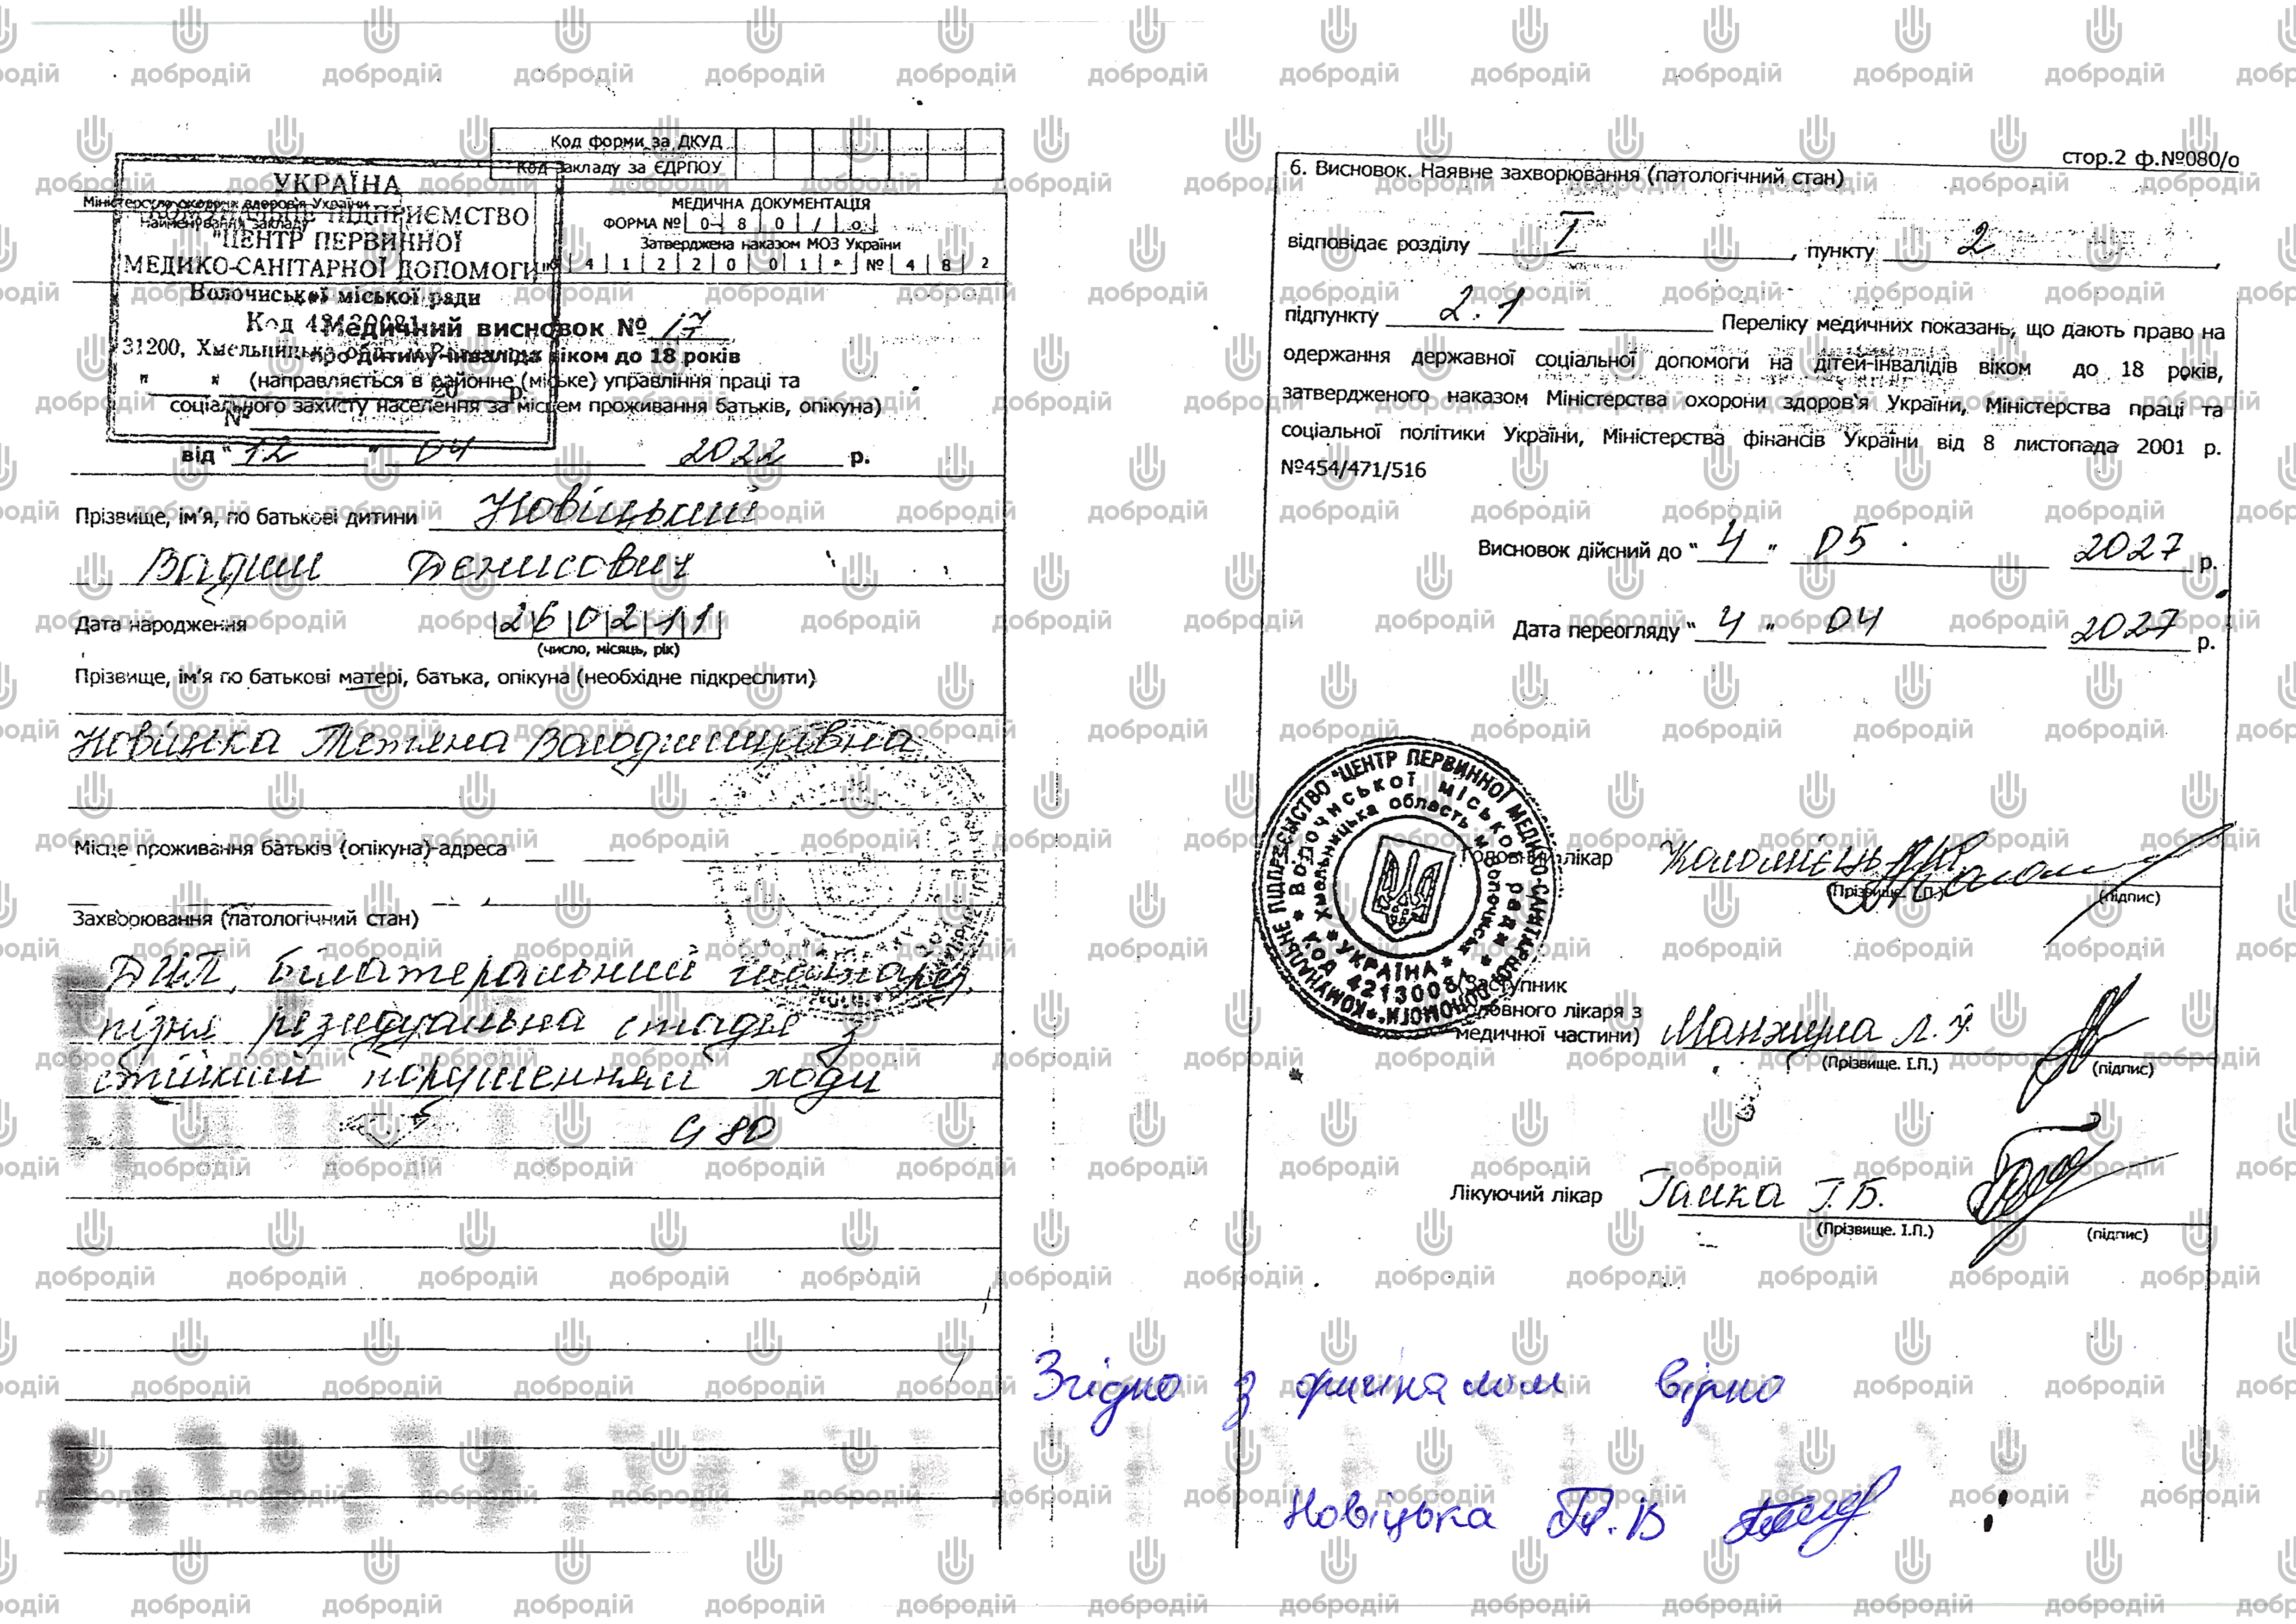 Код форми за ДКУД
Код закладу за ЄДРПОУ
УКРАЇНА
Міністерство охорони здоров'я України
КОМУНАЛЬНЕ ПІДПРИЄМСТВО
Найменування закладу
"ЦЕНТР ПЕРВИННОЇ
МЕДИКО-САНІТАРНОЇ ДОПОМОГИ"
Волочиської міської ради
Код 42130081
31200, Хмельницька обл., м.
" " 20 р.
№
МЕДИЧНА ДОКУМЕНТАЦІЯ
ФОРМА № 0 8 0 / о
Затверджена наказом МОЗ України
0 4 1 2 2 0 0 1 р. № 4 8 2
Медичний висновок № 17
про дитину-інваліда віком до 18 років
(направляється в районне (міське) управління праці та
соціального захисту населення за місцем проживання батьків, опікуна)
від " 12 " 04 2022 р.
Прізвище, ім'я, по батькові дитини Новіцький
Вадим Денисович
Дата народження 26 02 11
(число, місяць, рік)
Прізвище, ім'я по батькові матері, батька, опікуна (необхідне підкреслити)
Новіцька Тетяна Володимирівна
Місце проживання батьків (опікуна)-адреса
Захворювання (патологічний стан)
ДЦП, білатеральний
пізня резидуальна стадія з
стійким порушенням ходи
G 80
стор.2 ф.№080/о
6. Висновок. Наявне захворювання (патологічний стан)
відповідає розділу I , пункту 2 ,
підпункту 2.1 Переліку медичних показань, що дають право на
одержання державної соціальної допомоги на дітей-інвалідів віком до 18 років,
затвердженого наказом Міністерства охорони здоров'я України, Міністерства праці та
соціальної політики України, Міністерства фінансів України від 8 листопада 2001 р.
№454/471/516
Висновок дійсний до " 4 " 05 2027 р.
Дата переогляду " 4 " 04 2027 р.
КОМУНАЛЬНЕ ПІДПРИЄМСТВО "ЦЕНТР ПЕРВИННОЇ МЕДИКО-САНІТАРНОЇ ДОПОМОГИ"
Волочиської міської ради * Код 42130081
Хмельницька область м. Волочиськ * УКРАЇНА *
Головний лікар Коломієць
(Прізвище. І.П.) (підпис)
(Заступник
головного лікаря з
медичної частини) Манжула Л.У.
(Прізвище. І.П.) (підпис)
Лікуючий лікар Гамка Г.Б.
(Прізвище. І.П.) (підпис)
Згідно з оригіналом вірно
Новіцька Т.В
добродій